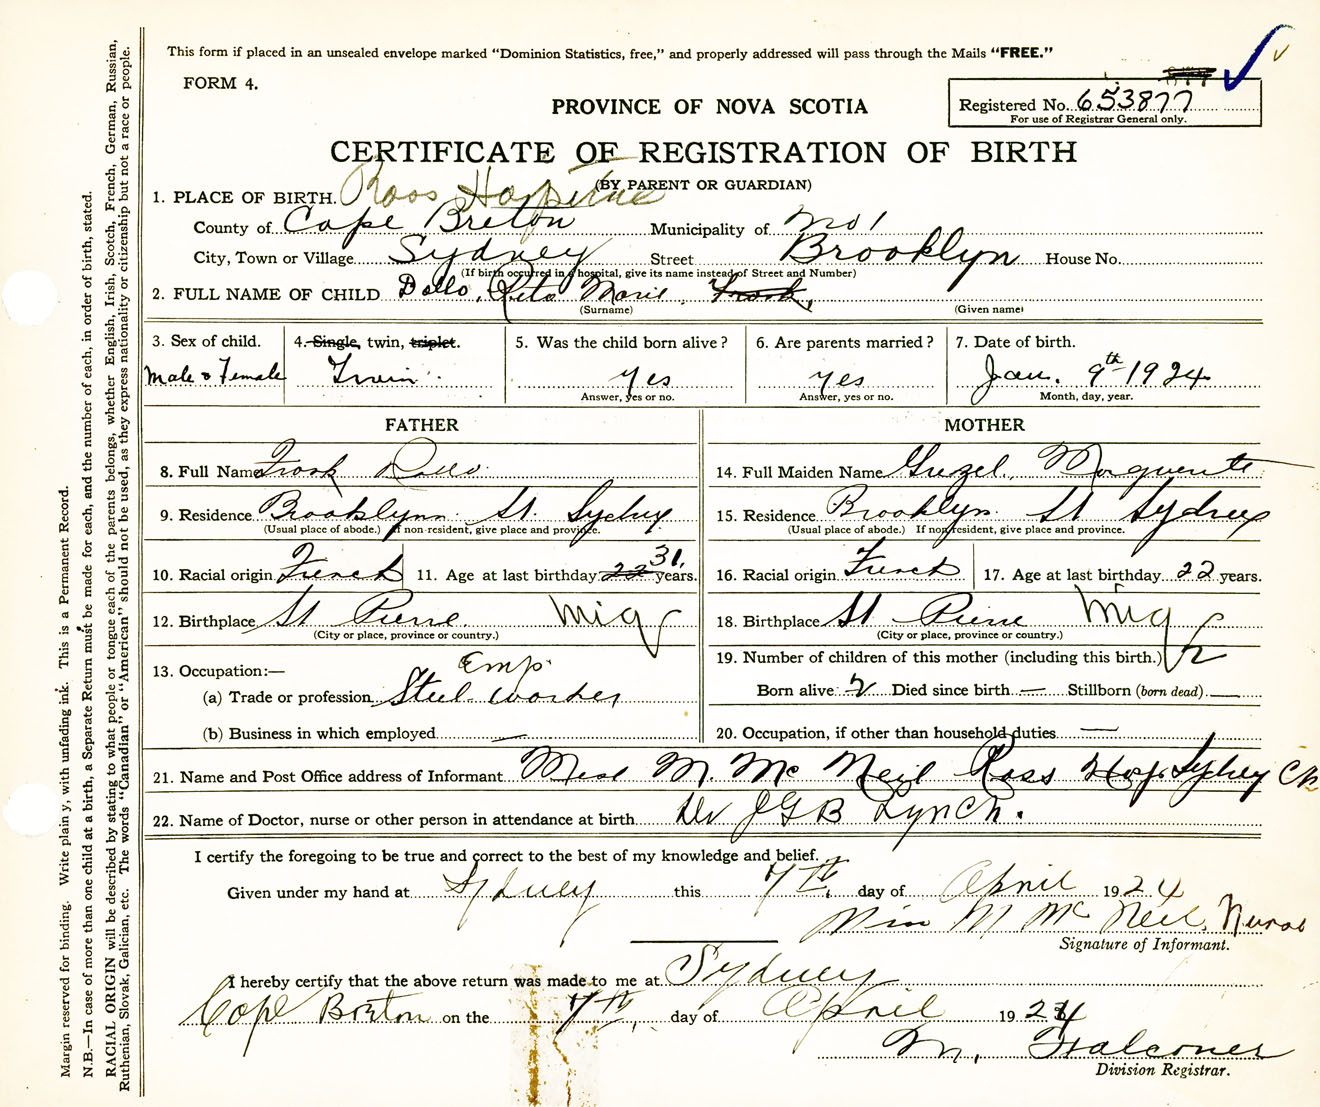 This form if placed in an unsealed envelope marked “Dominion Statistics, free,” and properly addressed will pass through the Mails “FREE.”
FORM 4.
PROVINCE OF NOVA SCOTIA
Registered No. 653877
For use of Registrar General only.
CERTIFICATE OF REGISTRATION OF BIRTH
(BY PARENT OR GUARDIAN)
1. PLACE OF BIRTH. Ross Hospital
County of Cape Breton Municipality of No 1
City, Town or Village Sydney Street Brooklyn House No.
(If birth occurred in a hospital, give its name instead of Street and Number)
2. FULL NAME OF CHILD Dollo, Rita Marie, Frank,
(Surname) (Given name)
3. Sex of child. 4. Single, twin, triplet. 5. Was the child born alive? 6. Are parents married? 7. Date of birth.
Male & Female Twin Yes Yes Jan. 9th 1924
Answer, yes or no. Answer, yes or no. Month, day, year.
FATHER MOTHER
8. Full Name Frank Dollo 14. Full Maiden Name Marguerite
9. Residence Brooklynn St. Sydney 15. Residence Brooklyn St Sydney
(Usual place of abode.) If non-resident, give place and province. (Usual place of abode.) If non-resident, give place and province.
10. Racial origin French 11. Age at last birthday 22 31, years. 16. Racial origin French 17. Age at last birthday 22 years.
12. Birthplace St Pierre Miq 18. Birthplace St Pierre Miq
(City or place, province or country.) (City or place, province or country.)
13. Occupation:— Emp 19. Number of children of this mother (including this birth.) 2
(a) Trade or profession Steel worker Born alive 2 Died since birth — Stillborn (born dead). —
(b) Business in which employed — 20. Occupation, if other than household duties —
21. Name and Post Office address of Informant Miss M. Mc Neil Ross Hosp. Sydney CB
22. Name of Doctor, nurse or other person in attendance at birth Dr JGB Lynch.
I certify the foregoing to be true and correct to the best of my knowledge and belief.
Given under my hand at Sydney this 7th, day of April 1924
Miss M Mc Neil, Nurse
Signature of Informant.
I hereby certify that the above return was made to me at Sydney
Cape Breton on the 7th, day of April 1924
M. Falconer
Division Registrar.
Margin reserved for binding. Write plainly, with unfading ink. This is a Permanent Record.
N.B.—In case of more than one child at a birth, a Separate Return must be made for each, and the number of each, in order of birth, stated.
RACIAL ORIGIN will be described by stating to what people or tongue each of the parents belongs, whether English, Irish, Scotch, French, German, Russian,
Ruthenian, Slovak, Galician, etc. The words “Canadian” or “American” should not be used, as they express nationality or citizenship but not a race or people.